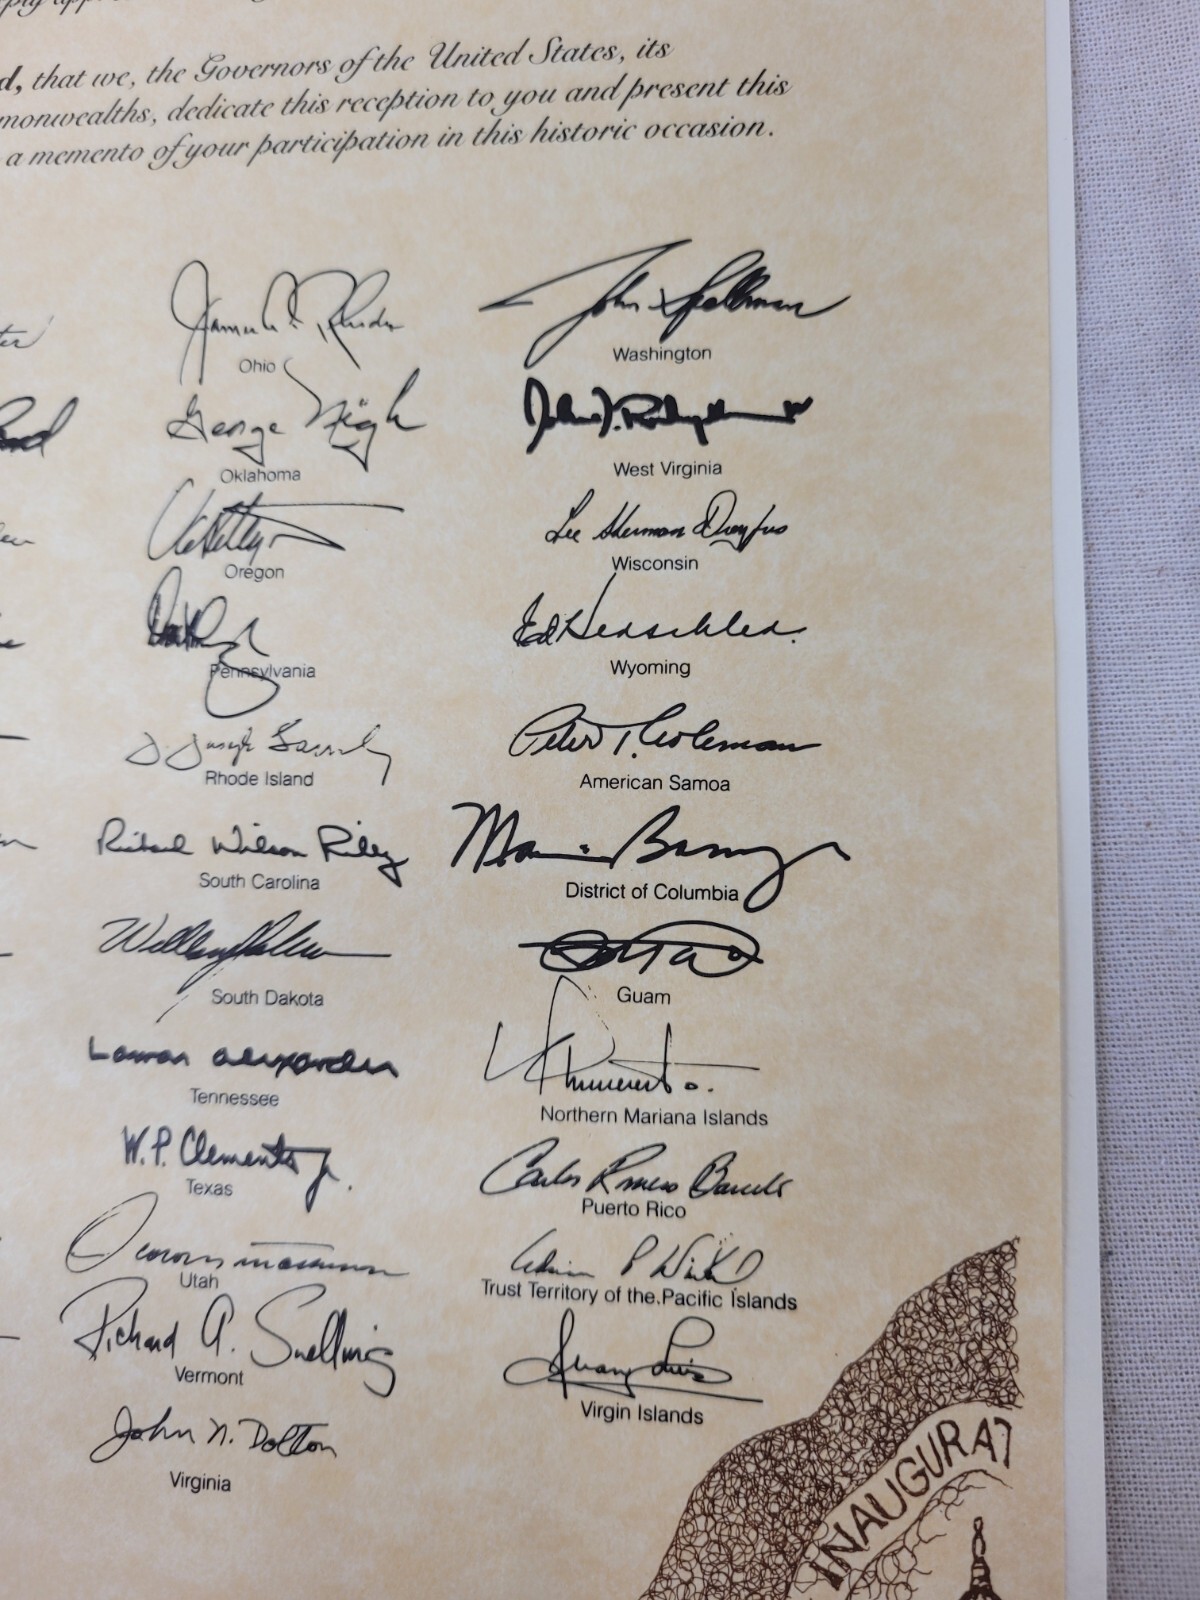 d, that we, the Governors of the United States, its
monwealths, dedicate this reception to you and present this
a memento of your participation in this historic occasion.
James A. Rhodes
Ohio
George Nigh
Oklahoma
Oregon
Pennsylvania
J. Joseph Garrahy
Rhode Island
Richard Wilson Riley
South Carolina
South Dakota
Lamar Alexander
Tennessee
W.P. Clements Jr.
Texas
Utah
Richard A. Snelling
Vermont
John N. Dalton
Virginia
John Spellman
Washington
West Virginia
Lee Sherman Dreyfus
Wisconsin
Ed Herschler
Wyoming
Peter T. Coleman
American Samoa
Marion Barry
District of Columbia
Guam
Northern Mariana Islands
Carlos Romero Barcelo
Puerto Rico
Trust Territory of the Pacific Islands
Juan Luis
Virgin Islands
INAUGURAT